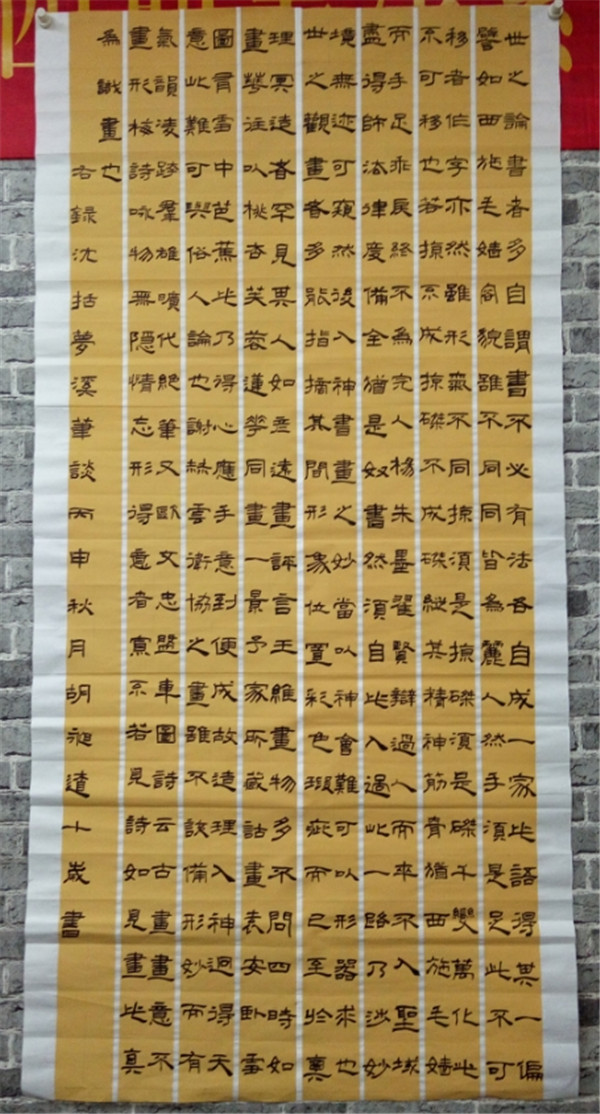 世之論書者多自謂書不必有法各自成一家此語得其一偏
譬如西施毛嬙容貌雖不同同皆為麗人然手須是足此不可
移者作字亦然雖形氣不同掠須是掠磔須是磔千變萬化此
不可移也若掠不成掠磔不成磔縱其精神筋骨猶西施毛嬙
而手足乖戾終不為完人楊朱墨翟賢辯過人而卒不入聖域
盡得師法律度備全猶是奴書然須自此入過此一路乃涉妙
境無迹可窺然後入神書畫之妙當以神會難可以形器求也
世之觀畫者多能指摘其間形象位置彩色瑕疵而已至於奧
理冥造者罕見其人如彥遠畫評言王維畫物多不問四時如
畫華往以桃杏芙蓉蓮華同畫一景予家所藏詁畫袁安臥雪
圖有雪中芭蕉此乃得心應手意到便成故造理入神迥得天
意此難可與俗人論也謝赫雲衛協之畫雖不該備形妙而有
氣韻凌跨羣雄曠代絕筆又歐文忠盤車圖詩云古畫畫意不
畫形梅詩詠物無隱情忘形得意者寡不若見詩如見畫此真
為識畫也
右錄沈括夢溪筆談丙申秋月胡昶十歲書